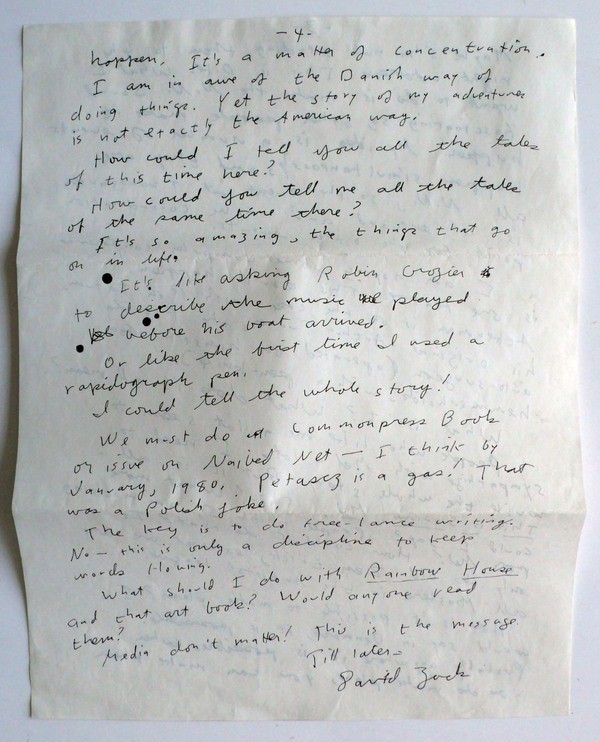 -4-
happen. It's a matter of concentration.
I am in awe of the Danish way of
doing things. Yet the story of my adventures
is not exactly the American way.
How could I tell you all the tales
of this time here?
How could you tell me all the tales
of the same time there?
It's so amazing, the things that go
on in life.
It's like asking Robin Crozier
to describe the music he played
before his boat arrived.
Or like the first time I used a
rapidograph pen.
I could tell the whole story!
We must do a Commonpress Book
or issue on Naibed Net — I think by
January, 1980. Petasz is a gas! That
was a Polish joke.
The key is to do free-lance writing.
No — this is only a discipline to keep
words flowing.
What should I do with Rainbow House
and that art book? Would anyone read
them?
Media don't matter! This is the message.
Till later —
David Zack